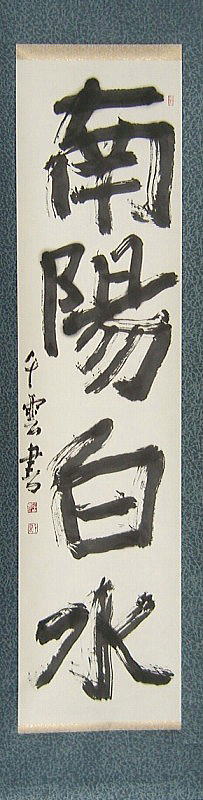 南陽白水
千雲書